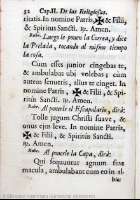 32 Cap. II. De las Religiosas.
ricatis. In nomine Patris, ✠ Filii,
& Spiritus Sancti. ℟. Amen.
Rubr. Luego le ponen la Correa, y dice
la Prelada, tocando al mismo tiempo
la
Cum esses junior cingebas te,
& ambulabas ubi volebas; cum
autem senueris, alius te cinget. In
nomine Patris, ✠ & Filii, & Spi-
ritus Sancti. ℟. Amen.
Rubr. Al ponerle el Escapulario, dirá:
Tolle jugum Christi suave, &
onus ejus leve. In nomine Patris,
✠ & Filii, & Spiritus Sancti.
℟. Amen.
Rubr. Al ponerle la Capa, dirá:
Qui sequuntur agnum sine
macula, ambulabunt cum eo in al-
bis